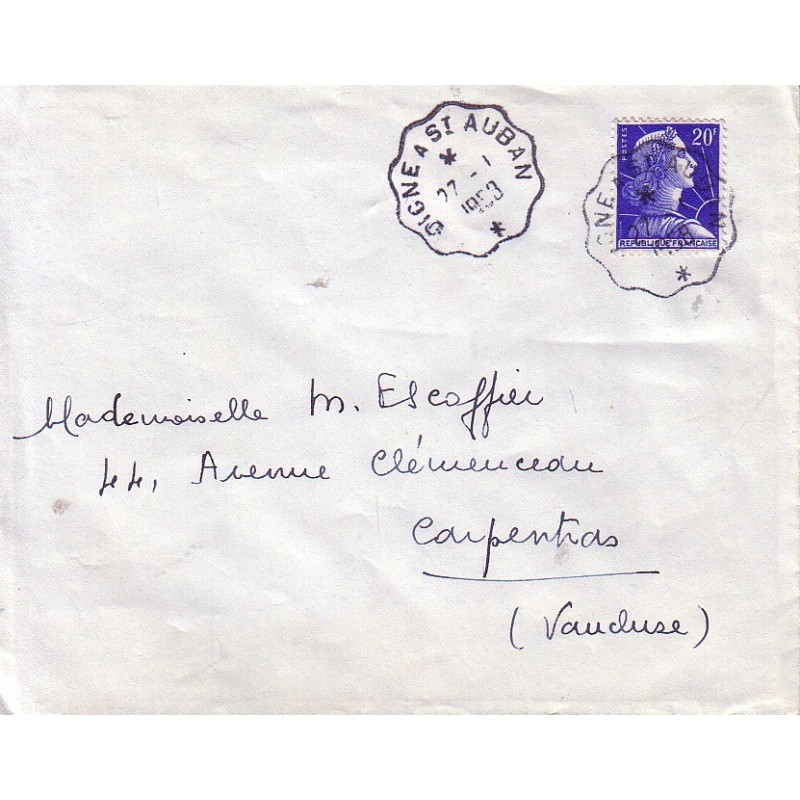 DIGNE A ST AUBAN
27 - 1
1958
POSTES
20F
REPUBLIQUE FRANÇAISE
GNE A ST AUBAN
27
1958
Mademoiselle M. Escoffier
44, Avenue Clémenceau
Carpentras
(Vaucluse)